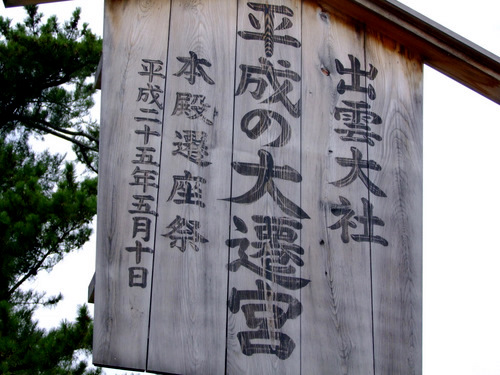 出雲大社
平成の大遷宮
本殿遷座祭
平成二十五年五月十日